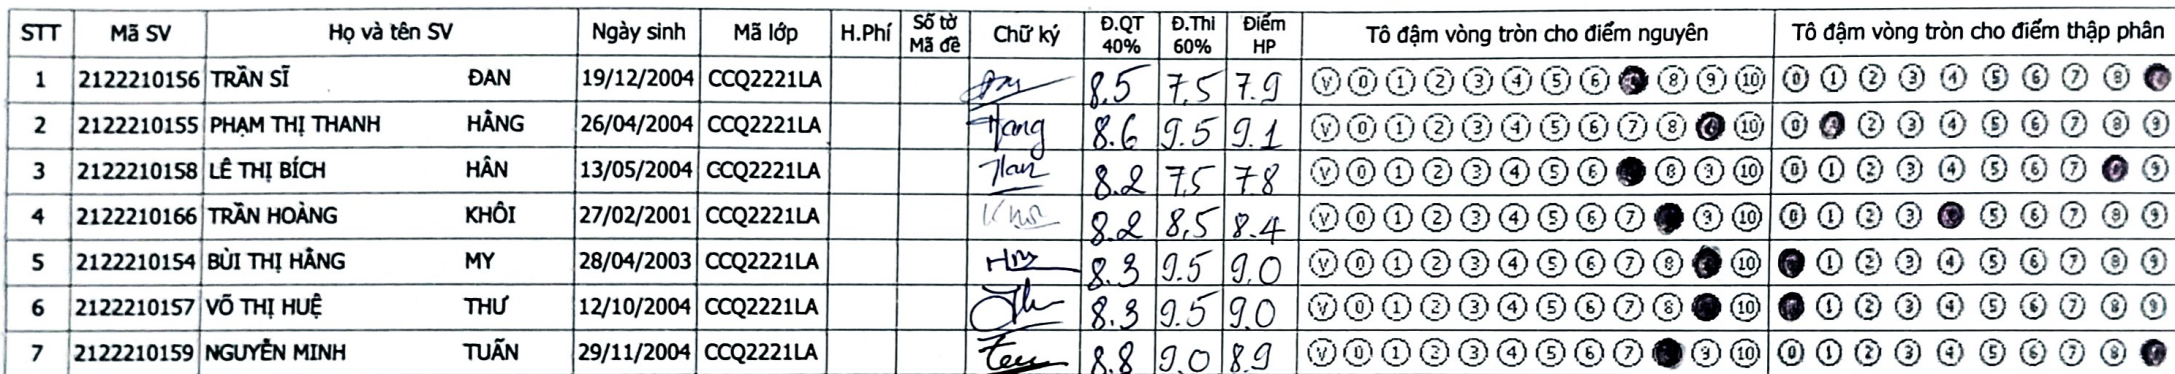 STT Mã SV Họ và tên SV Ngày sinh Mã lớp H.Phí Số tờ Mã đề Chữ ký Đ.QT 40% Đ.Thi 60% Điểm HP Tô đậm vòng tròn cho điểm nguyên Tô đậm vòng tròn cho điểm thập phân
1 2122210156 TRẦN SĨ ĐAN 19/12/2004 CCQ2221LA 8.5 7.5 7.9 V 0 1 2 3 4 5 6 8 9 10 0 1 2 3 4 5 6 7 8
2 2122210155 PHẠM THỊ THANH HẰNG 26/04/2004 CCQ2221LA Hang 8.6 9.5 9.1 V 0 1 2 3 4 5 6 7 8 10 0 2 3 4 5 6 7 8 9
3 2122210158 LÊ THỊ BÍCH HÂN 13/05/2004 CCQ2221LA Han 8.2 7.5 7.8 V 0 1 2 3 4 5 6 8 9 10 0 1 2 3 4 5 6 7 9
4 2122210166 TRẦN HOÀNG KHÔI 27/02/2001 CCQ2221LA 8.2 8.5 8.4 V 0 1 2 3 4 5 6 7 9 10 0 1 2 3 5 6 7 8 9
5 2122210154 BÙI THỊ HẰNG MY 28/04/2003 CCQ2221LA 8.3 9.5 9.0 V 0 1 2 3 4 5 6 7 8 10 1 2 3 4 5 6 7 8 9
6 2122210157 VÕ THỊ HUỆ THƯ 12/10/2004 CCQ2221LA 8.3 9.5 9.0 V 0 1 2 3 4 5 6 7 8 10 1 2 3 4 5 6 7 8 9
7 2122210159 NGUYỄN MINH TUẤN 29/11/2004 CCQ2221LA 8.8 9.0 8.9 V 0 1 2 3 4 5 6 7 9 10 0 1 2 3 4 5 6 7 8